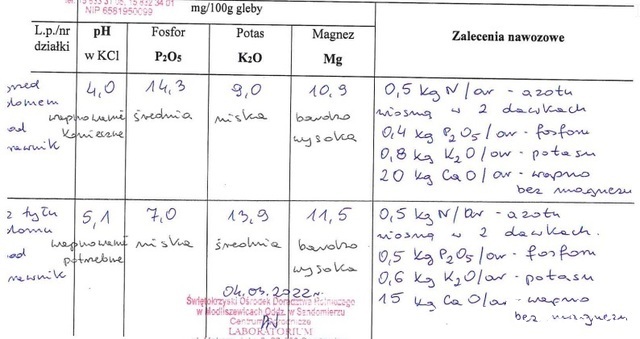 NIP 6581950099
mg/100g gleby
L.p./nr działki
pH w KCl
Fosfor P₂O₅
Potas K₂O
Magnez Mg
Zalecenia nawozowe
4,0
14,3
9,0
10,9
wapnowanie konieczne
średnia
niska
bardzo wysoka
0,5 kg N/ar - azotu
wiosną w 2 dawkach
0,4 kg P₂O₅/ar - fosforu
0,8 kg K₂O/ar - potasu
20 kg CaO/ar - wapno
bez magnezu
z tyłu domu
5,1
7,0
13,9
11,5
wapnowanie potrzebne
niska
średnia
bardzo wysoka
0,5 kg N/ar - azotu
wiosną w 2 dawkach.
0,5 kg P₂O₅/ar - fosforu
0,6 kg K₂O/ar - potasu
15 kg CaO/ar - wapno
bez magnezu
04.03.2022r.
Świętokrzyski Ośrodek Doradztwa Rolniczego
w Modliszewicach Oddz. w Sandomierzu
LABORATORIUM